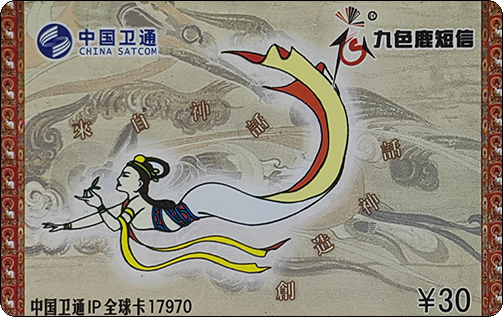 中国卫通
CHINA SATCOM
九色鹿短信
来自神話
創造神話
中国卫通IP全球卡17970
¥30